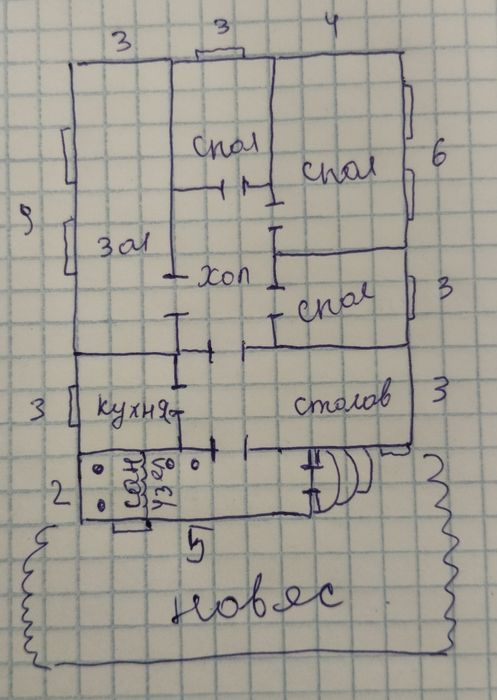 3 3 4
спал
спал
6
9
зал
хол
спал
3
3
кухня
столов
3
2
сан
узел
5
новес